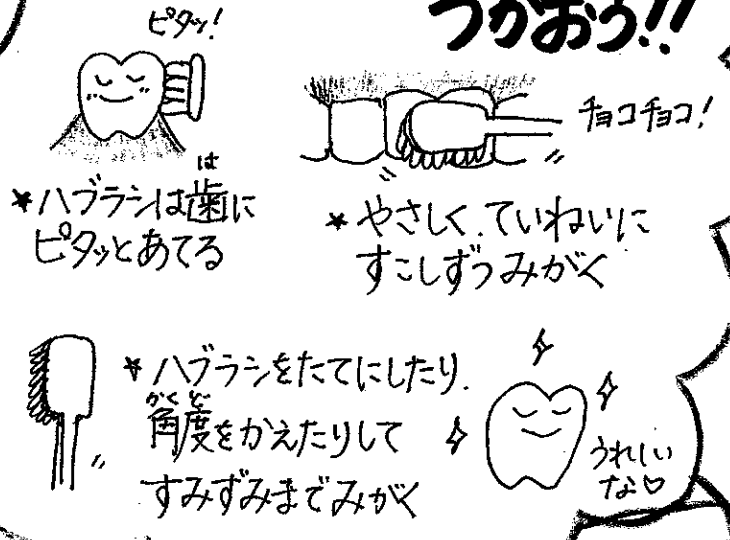 つかおう!!
ピタッ!
チョコチョコ!
は
★ハブラシは歯に
ピタッとあてる
★やさしく、ていねいに
すこしずつみがく
★ハブラシをたてにしたり、
かくど
角度をかえたりして
すみずみまでみがく
うれしい
な♡